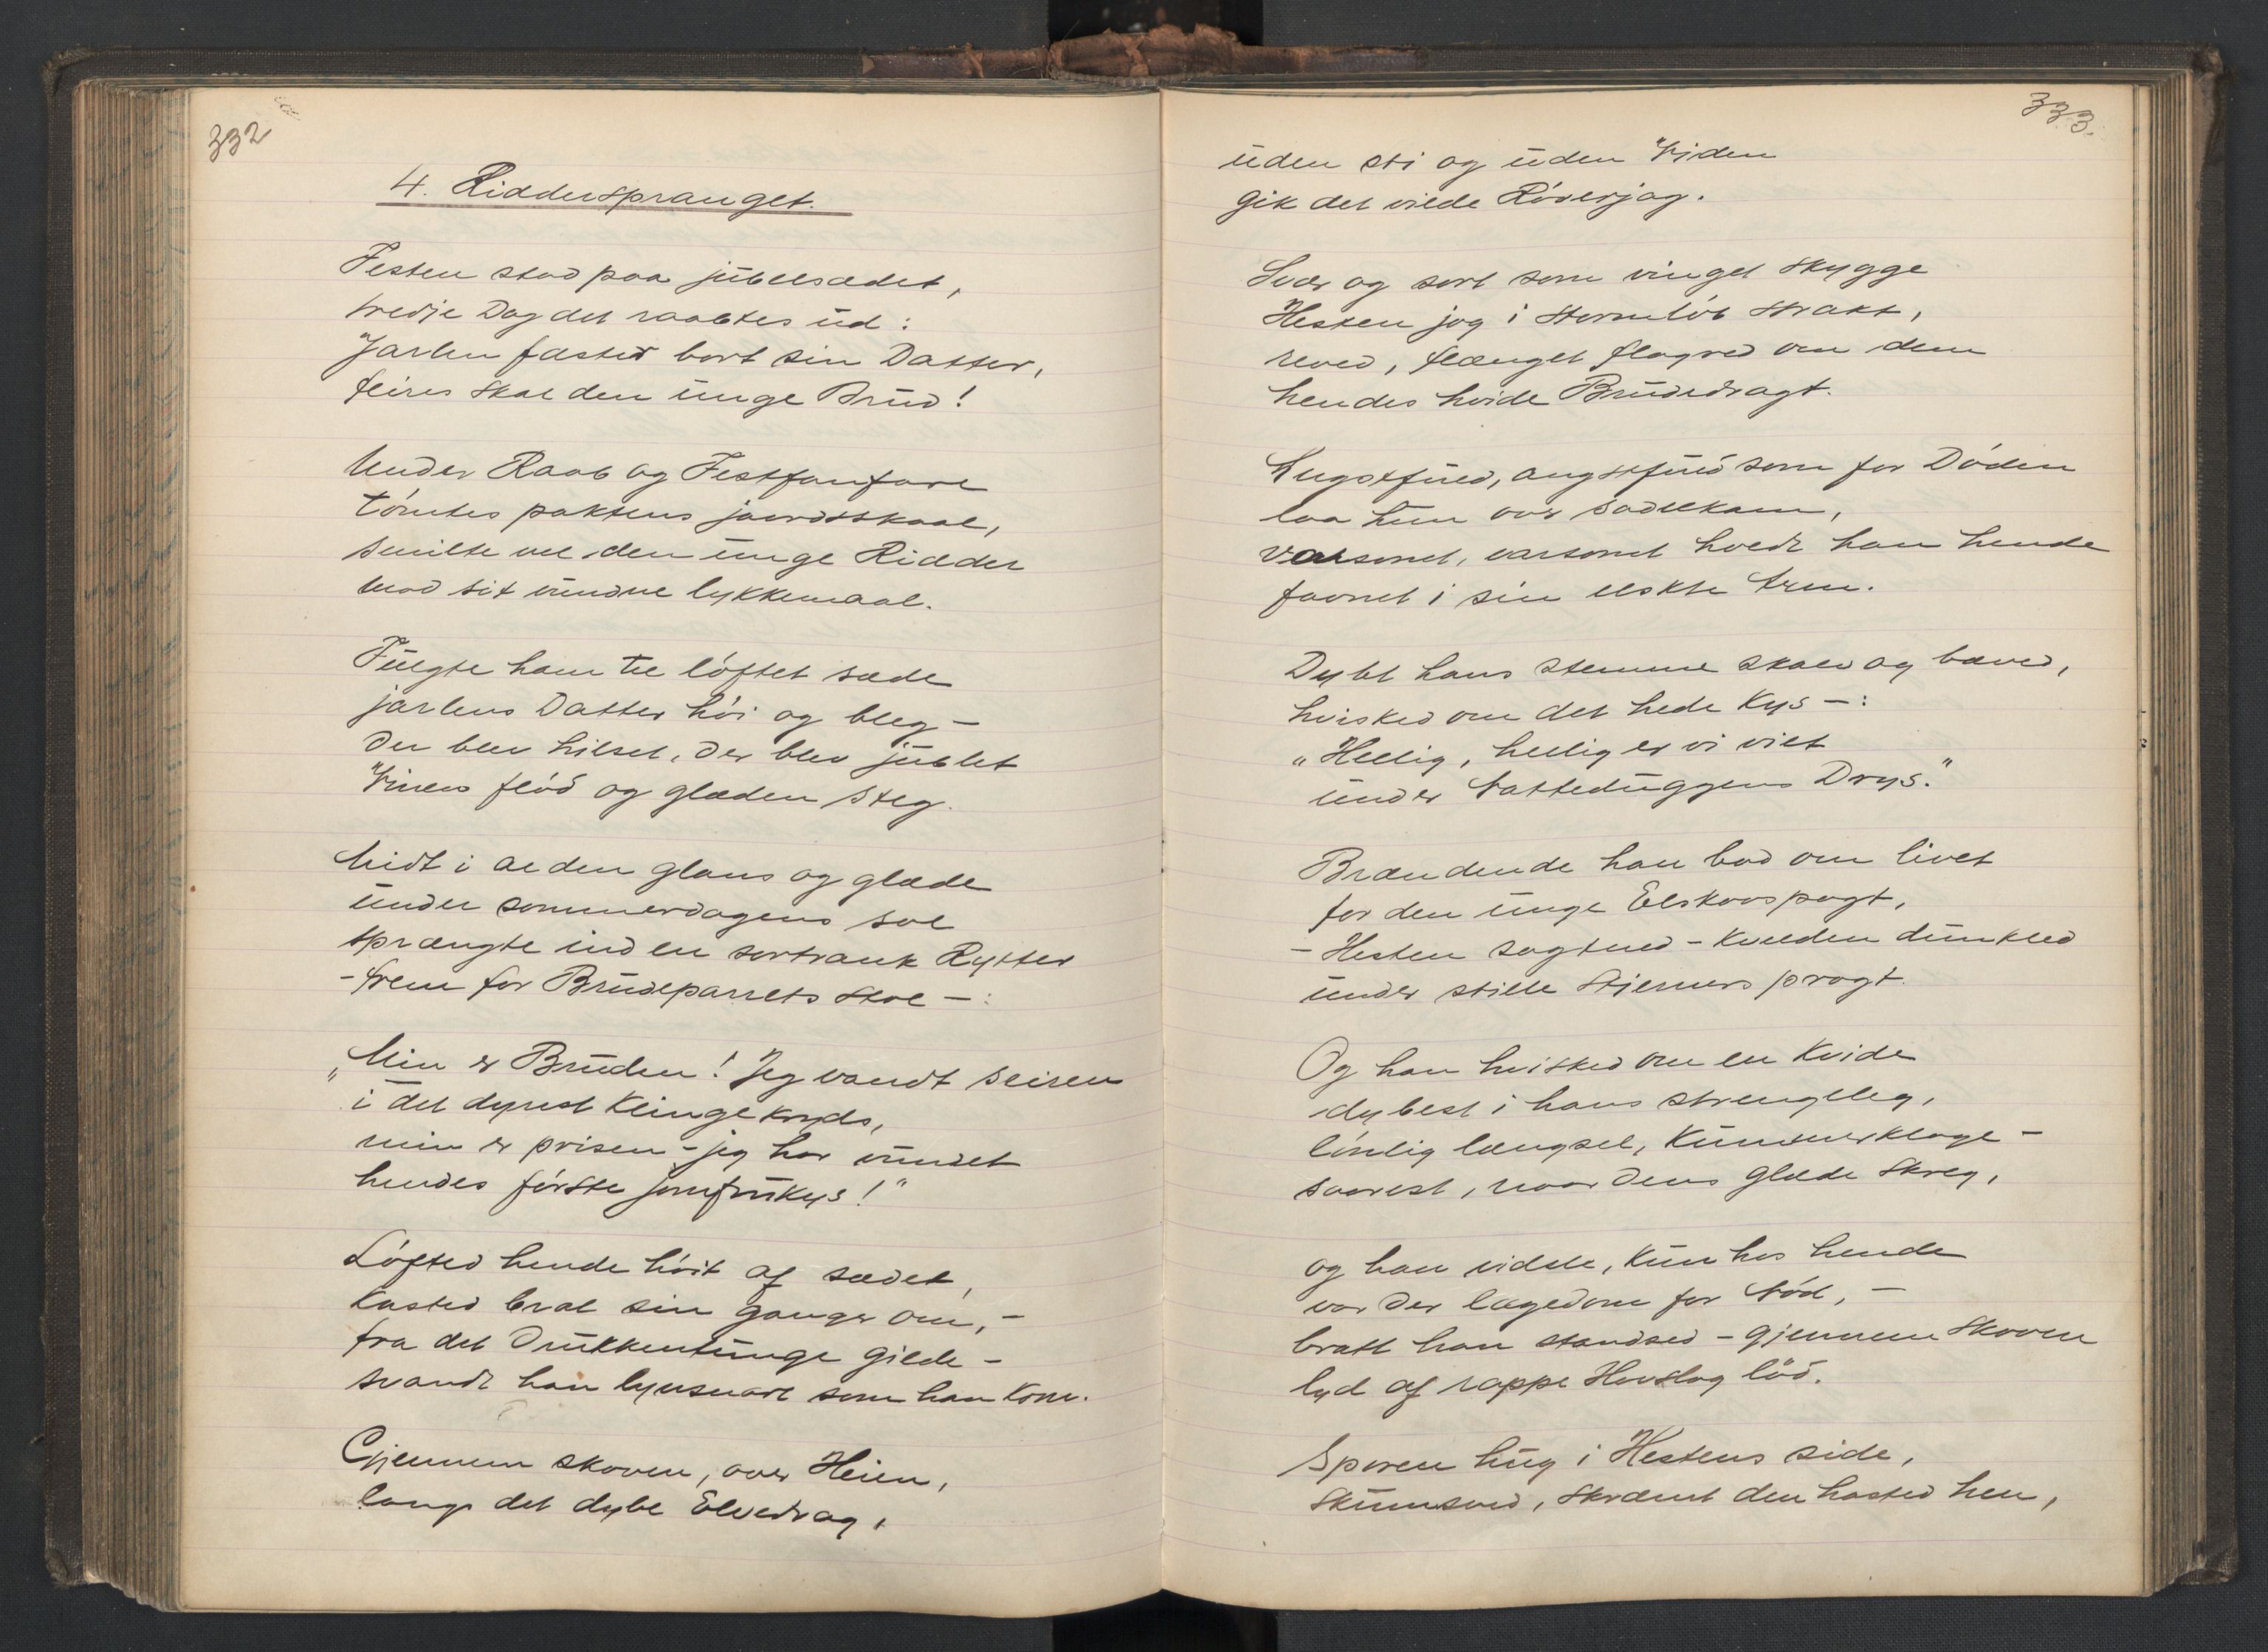 332
4. Ridderspranget.
Festen stod paa jubelsædet,
tredje Dag det raabtes ud:
Jarlen fæsted bort sin Datter,
feires skal den unge Brud!
Under Raab og Festfanfare
tómtes paktens jaordsskaal,
smilte vel den unge Ridder
mod sit vundne lykkemaal.
Fulgte ham til lóftet sæde
jarlens Datter hói og bleg –
der blev hilset, der blev jublet
Vinen flód og glæden steg.
Midt i al den glans og glæde
under sommerdagens sol
sprængte ind en sortrank Rytter
– frem for Brudeparrets Stol –:
„Min er Bruden! Jeg vandt seiren
i det dyrest Klingekryds,
min er prisen – jeg har vundet
hendes fórste jomfrukys!"
Lófted hende hóit af sædet,
Kasted brat sin ganger om, –
fra det drukkentunge gilde –
svandt han lynsnart som han Kom.
Gjennem skoven, over Heien,
langs det dybe Elvedrag,
333.
uden sti og uden Viden
gik det vilde Róverjag.
Svær og sort som vinget skygge
Hesten jog i stormlób strakt,
reved, flænget flagred om dem
hendes hvide Brudedragt.
Angstfuld, angstfuld som for Dóden
laa hun over sadelkam,
varsomt, varsomt holdt han hende
favnet i sin elskte Arm.
Dybt hans stemme skalv og bæved,
hvisked om det hede Kys –:
„Hellig, hellig er vi viet
under Natteduggens Drys."
Brændende han bad om livet
for den unge Elskovspagt,
– Hesten sagtned – Kvelden dunkled
under stille Stjerners pragt.
Og han hvisked om en Kvide
dybest i hans strengeleg,
lónlig længsel, Kummerklage –
saarest, naar dens glæde skreg,
og han vidste, Kun hos hende
var der lægedom for Nód, –
bratt han standsed – gjennem Skoven
lyd af rappe Hovslag lód.
Sporen hug i Hestens side,
Skumsved, skræmt den hasted hen,